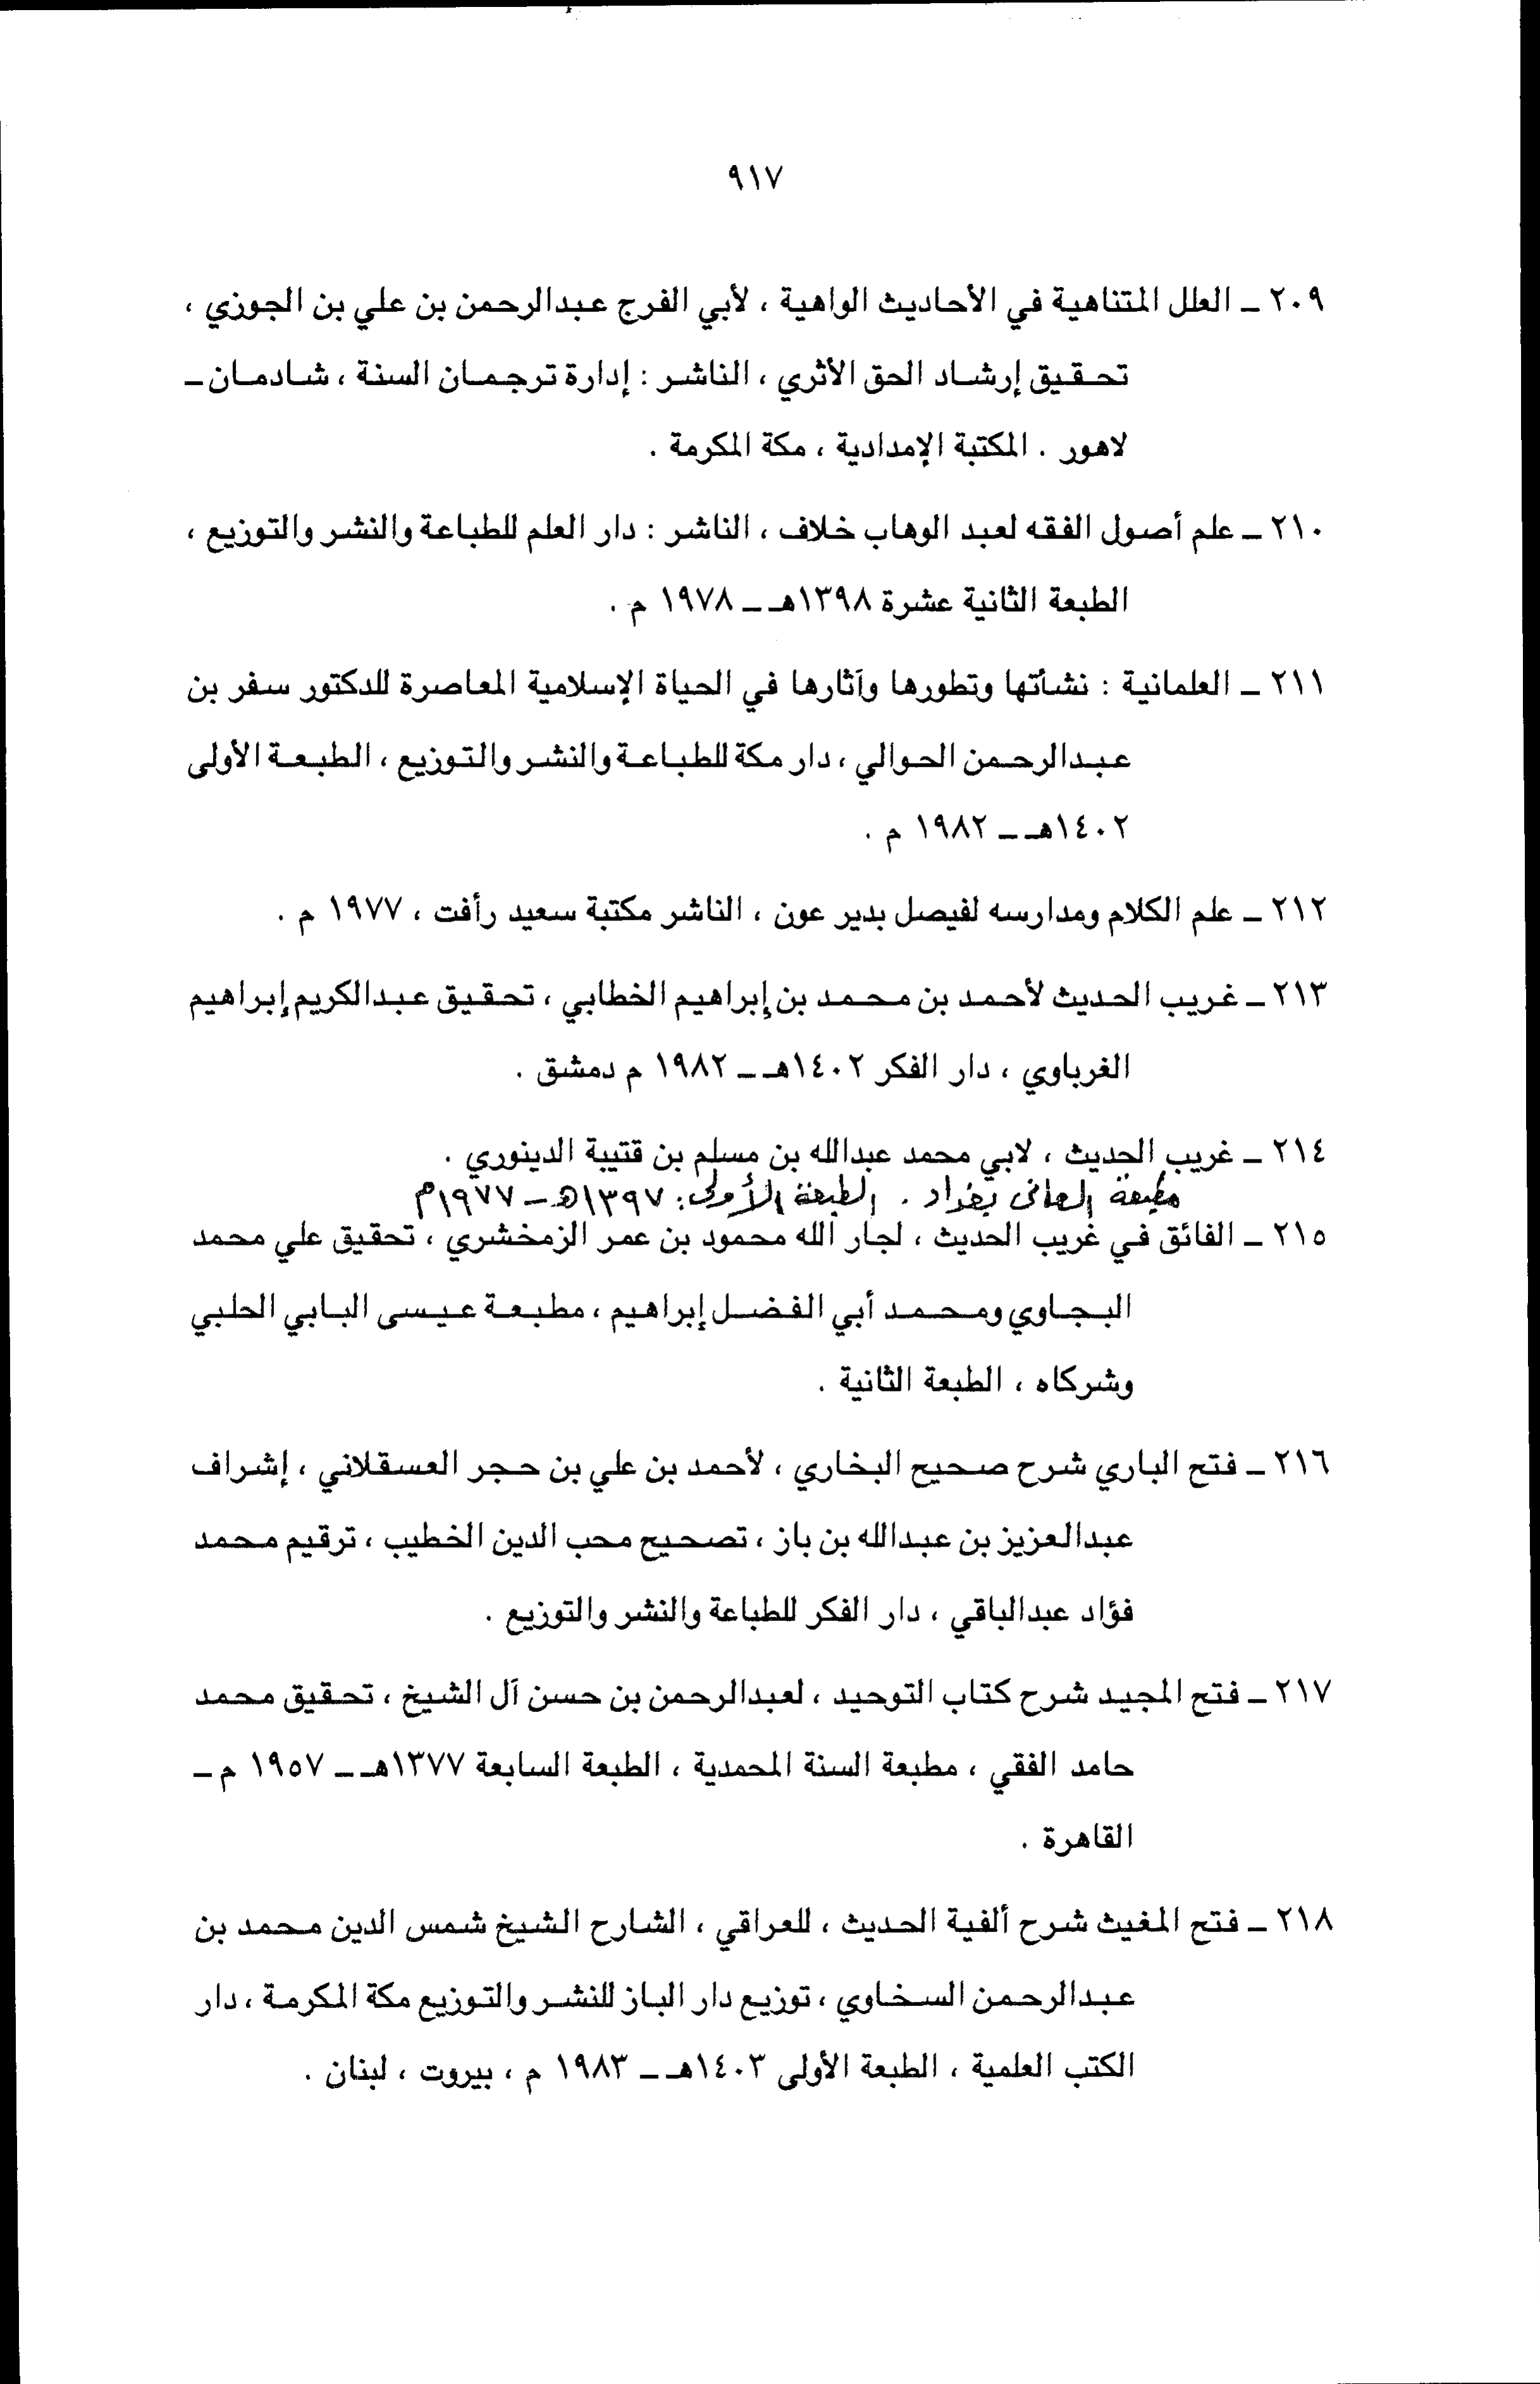 ٩١٧
٢٠٩ ـ العلل المتناهية في الأحاديث الواهية ، لأبي الفرج عبدالرحمن بن علي بن الجوزي ،
تحقيق إرشاد الحق الأثري ، الناشر : إدارة ترجمان السنة ، شادمان ـ
لاهور . المكتبة الإمدادية ، مكة المكرمة .
٢١٠ ـ علم أصول الفقه لعبد الوهاب خلاف ، الناشر : دار العلم للطباعة والنشر والتوزيع ،
الطبعة الثانية عشرة ١٣٩٨هـ ـ ١٩٧٨ م .
٢١١ ـ العلمانية : نشأتها وتطورها وآثارها في الحياة الإسلامية المعاصرة للدكتور سفر بن
عبدالرحمن الحوالي ، دار مكة للطباعة والنشر والتوزيع ، الطبعة الأولى
١٤٠٢هـ ـ ١٩٨٢ م .
٢١٢ ـ علم الكلام ومدارسه لفيصل بدير عون ، الناشر مكتبة سعيد رأفت ، ١٩٧٧ م .
٢١٣ ـ غريب الحديث لأحمد بن محمد بن إبراهيم الخطابي ، تحقيق عبدالكريم إبراهيم
الغرباوي ، دار الفكر ١٤٠٢هـ ـ ١٩٨٢ م دمشق .
٢١٤ ـ غريب الحديث ، لابي محمد عبدالله بن مسلم بن قتيبة الدينوري .
مطبعة العانى بغداد . الطبعة الأولى: ١٣٩٧هـ ـ ١٩٧٧م
٢١٥ ـ الفائق في غريب الحديث ، لجار الله محمود بن عمر الزمخشري ، تحقيق علي محمد
البجاوي ومحمد أبي الفضل إبراهيم ، مطبعة عيسى البابي الحلبي
وشركاه ، الطبعة الثانية .
٢١٦ ـ فتح الباري شرح صحيح البخاري ، لأحمد بن علي بن حجر العسقلاني ، إشراف
عبدالعزيز بن عبدالله بن باز ، تصحيح محب الدين الخطيب ، ترقيم محمد
فؤاد عبدالباقي ، دار الفكر للطباعة والنشر والتوزيع .
٢١٧ ـ فتح المجيد شرح كتاب التوحيد ، لعبدالرحمن بن حسن آل الشيخ ، تحقيق محمد
حامد الفقي ، مطبعة السنة المحمدية ، الطبعة السابعة ١٣٧٧هـ ـ ١٩٥٧ م ـ
القاهرة .
٢١٨ ـ فتح المغيث شرح ألفية الحديث ، للعراقي ، الشارح الشيخ شمس الدين محمد بن
عبدالرحمن السخاوي ، توزيع دار الباز للنشر والتوزيع مكة المكرمة ، دار
الكتب العلمية ، الطبعة الأولى ١٤٠٣هـ ـ ١٩٨٣ م ، بيروت ، لبنان .